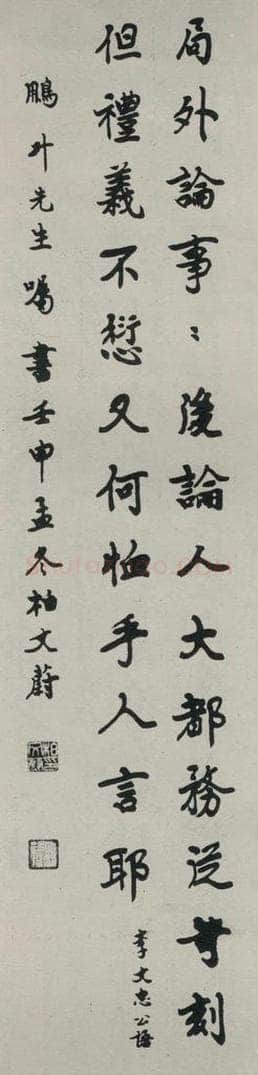 局外論事〻後論人大都務從苛刻
但禮義不愆又何恤乎人言耶
李文忠公語
鵬升先生囑書壬申孟冬柏文蔚